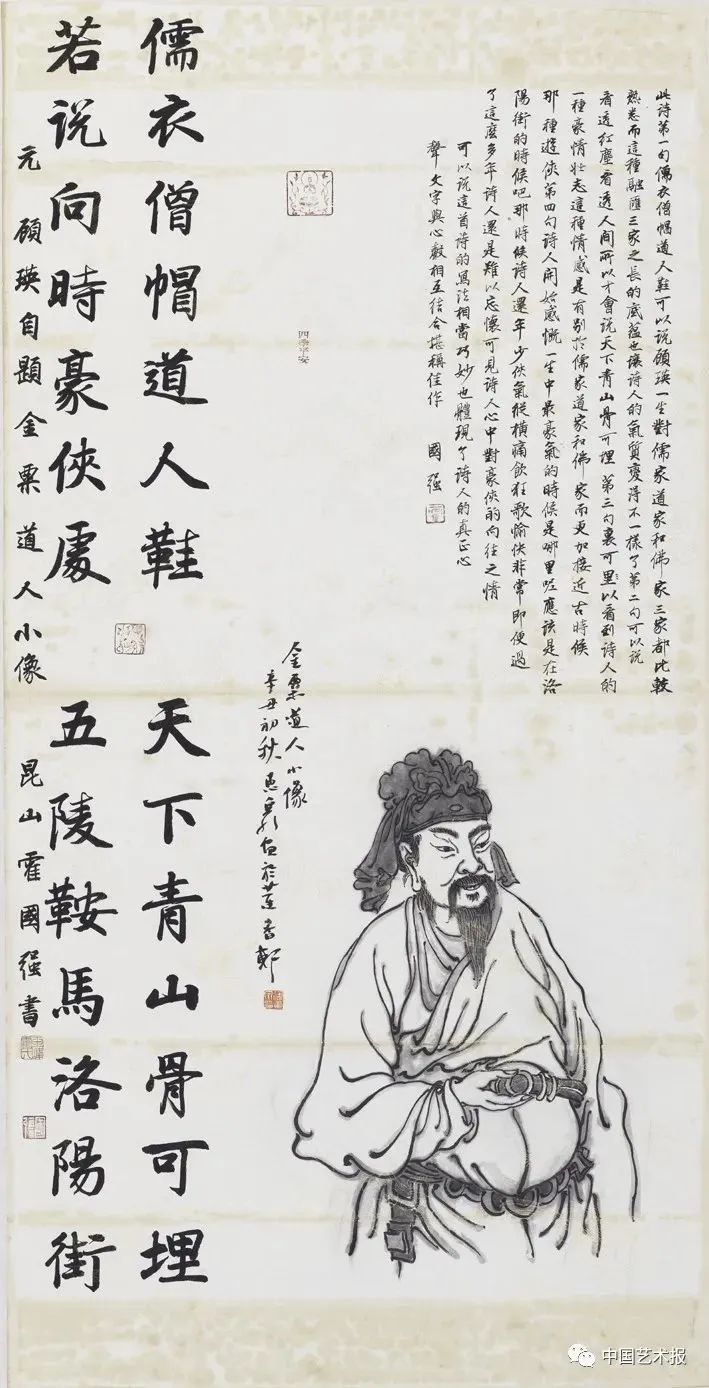 此詩第一句儒衣僧帽道人鞋可以說顧瑛一生對儒家道家和佛家三家都比較
熟悉而這種融匯三家之長的底蘊也讓詩人的氣質變得不一樣了第二句可以說
看透紅塵看透人間所以才會說天下青山骨可埋第三句裏可里以看到詩人的
一種豪情壯志這種情感是有别於儒家道家和佛家而更加接近古時候
那種遊俠第四句詩人開始感慨一生中最豪氣的時候是哪里呢應該是在洛
陽街的時候吧那時候詩人還年少俠氣縱橫痛飲狂歌愉快非常即便過
了這麼多年詩人還是難以忘懷可見詩人心中對豪俠的向往之情
可以說這首詩的寫法相當巧妙也體現了詩人的真正心
聲文字與心數相互结合堪稱佳作 國强
四季平安
金粟道人小像
辛丑初秋於蓮香邨
儒衣僧帽道人鞋 天下青山骨可埋
若説向時豪俠處 五陵鞍馬洛陽街
元 顧瑛自題金粟道人小像 昆山霍國强書
中国艺术报